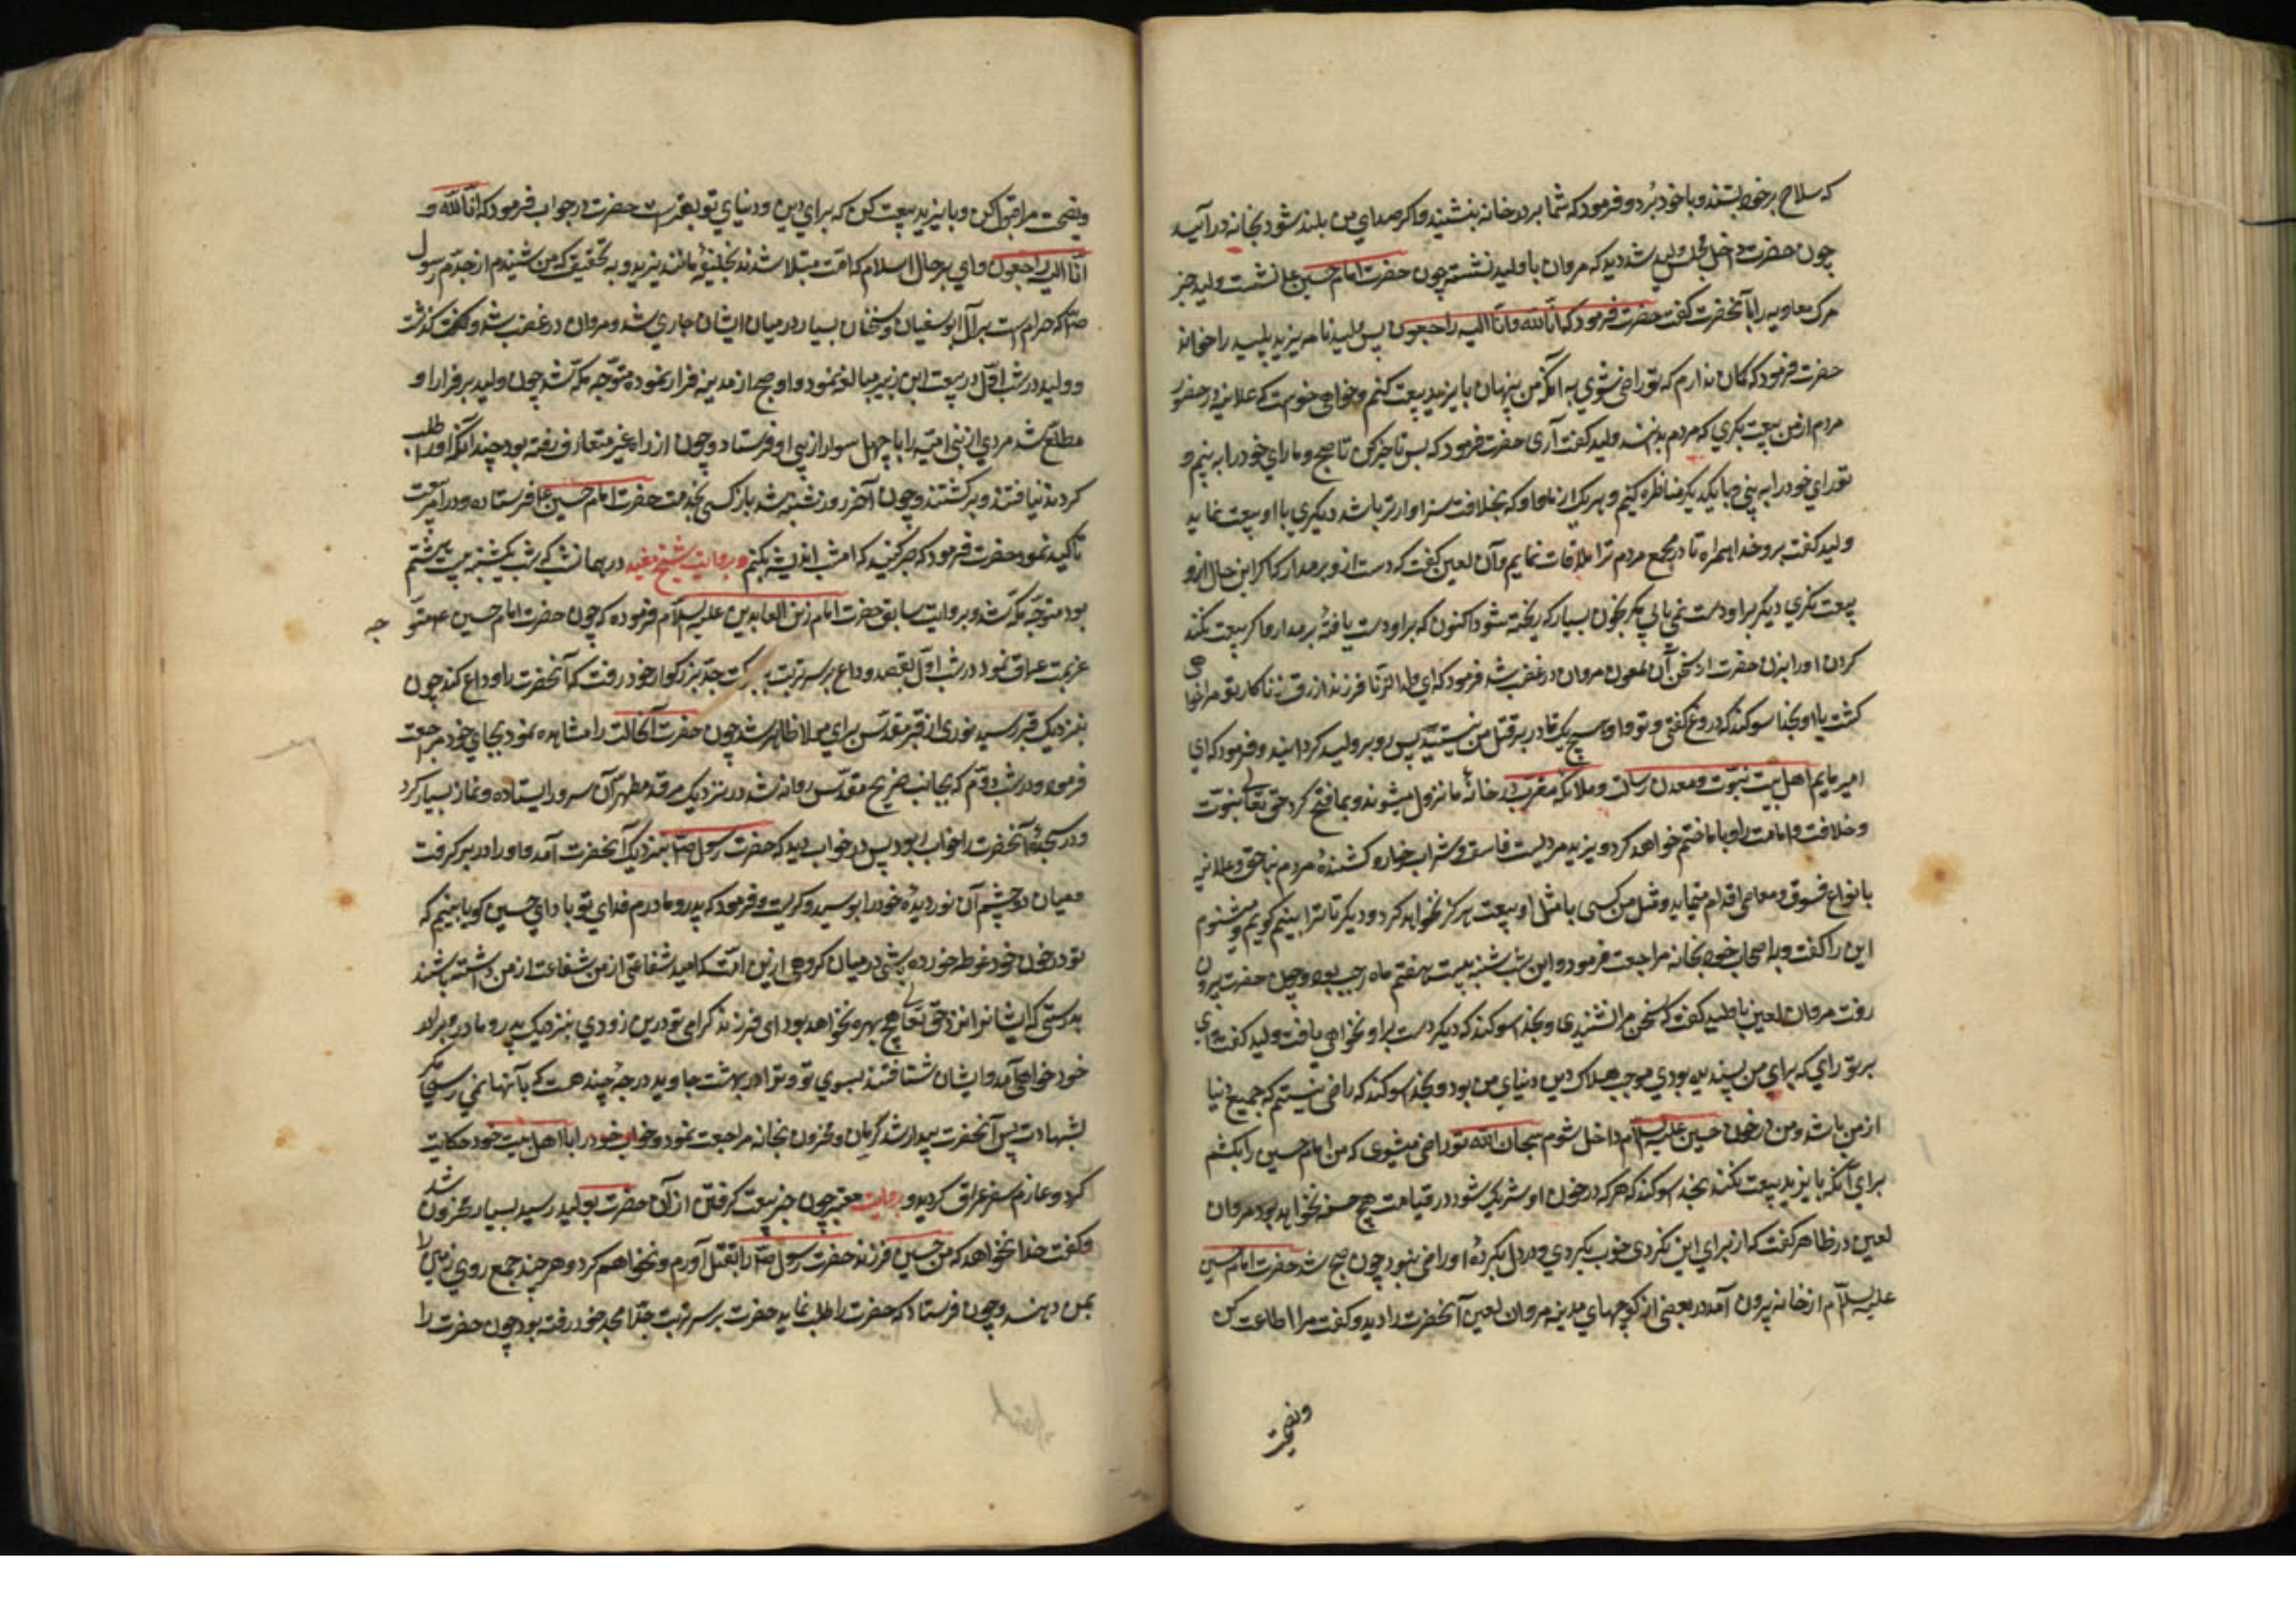 که سلاح بر خود بستند و با خود برد و فرمود که شما بر در خانه بنشیند و اکر صدای من بلند شود بخانه درآیید
چون حضرت داخل مجلس ولید شد دید که مروان با ولید نشسته چون حضرت امام حسین ع نشست ولید خبر
مرک معاویه را بآنحضرت کفت حضرت فرمود که انا لله وانا الیه راجعون پس ولید نامه یزید پلید را خواند
حضرت فرمود که کمان ندارم که تو راضی شوی به آنکه من پنهان با یزید بیعت کنم و خواهی خواست که علانیه در حضور
مردم از من بیعت بکیری که مردم بدانند ولید کفت آری حضرت فرمود که پس تاخیر کن تا صبح و ما رای خود را به بینیم و
تو رای خود را به بینی و با یکدیکر مناظره کنیم و هر یک از ماها و که بخلافت سزاوارتر باشد دیکری با او بیعت نماید
ولید کفت برو خدا همراه تا در مجمع مردم ترا ملاقات نمایم و آن لعین کفت که دست از و برمدار که اکر این حال از و
بیعت نکیری دیکر بر او دست نمی یابی مکر بخون بسیار که ریخته شود اکنون که بر او دست یافتهٔ برمدار و اکر بیعت نکند
کردن او را بزن حضرت از سخن آن ملعون مروان در غضب شد فرمود که ای ولد الزنا فرزند ازرق زناکار تو مرا خواهی
کشت یا او بخدا سوکند که دروغ کفتی و تو و او هیچ یک قادر بر قتل من نیستید پس رو بر ولید کردانید و فرمود که ای
امیر مایم اهل بیت نبوت و معدن رسالت و ملائکه مقرب در خانهٔ ما نزول میشوند و بما فتح کرد حق تعالی نبوت
و خلافت و امامت را و با ما ختم خواهد کرد و یزید مردیست فاسق و شراب خوار و کشندهٔ مردم بناحق و علانیه
بانواع فسوق و معاصی اقدام مینماید و مثل من کسی با مثل او بیعت هرکز نخواهد کرد و دیکر تا ترا بینیم کویم و میشنوم
این را کفت و با اصحاب خود بخانه مراجعت فرمود و این شب شنبه بیست هفتم ماه رجب بود و چون حضرت بیرون
رفت مروان لعین با ولید کفت که سخن مرا نشنیدی و بخدا سوکند که دیکر دست بر او نخواهی یافت ولید کفت وای
بر تو رای که برای من پسندیده بودی موجب هلاک دین و دنیای من بود و بخدا سوکند که راضی نیستم که جمیع دنیا
از من باشد و من در خون حسین علیه السلام داخل شوم سبحان الله تو راضی میشوی که من امام حسین را بکشم
برای آنکه با یزید بیعت نکند بخدا سوکند که هر که در خون او شریک شود در قیامت هیچ حسنه نخواهد بود مروان
لعین در ظاهر کفت که از برای این نکردی خوب کردی و در دل بکردهٔ او راضی نبود چون صبح شد حضرت امام حسین
علیه السلام از خانه بیرون آمد در بعضی از کوچهای مدینه مروان لعین آنحضرت را دید و کفت مرا اطاعت کن
ونصیحت
ونصیحت مرا قبول کن و با یزید بیعت کن که برای دین و دنیای تو بهتر است حضرت در جواب فرمود که انا لله و
انا الیه راجعون وای بر حال اسلام که امت مبتلا شدند بخلیفهٔ مانند یزید و به تحقیق که من شنیدم از جدم رسول
ص که حرامست بر آل ابوسفیان و سخنان بسیار در میان ایشان جاری شد و مروان در غضب شد و کفت کذشت
و ولید در شب اول در بیعت ابن زبیر مبالغه نمود و او صبح از مدینه فرار نموده متوجه مکه شد چون ولید بر فرار او
مطلع شد مردی از بنی امیه را با چهل سوار از پی او فرستاد و چون از راه غیر متعارف رفته بود چندانکه او را طلب
کردند نیافتند و برکشتند و چون آخر روز شنبه شد باز کسی بخدمت حضرت امام حسین ع فرستاده و در امر بیعت
تاکید نمود حضرت فرمود که صبر کنید که امشب اندیشه بکنم و بروایت شیخ مفید در همانشب که شب یکشنبه بیست هشتم
بود متوجه مکه شد و بروایت سابق حضرت امام زین العابدین علیه السلام فرموده که چون حضرت امام حسین ع متوجه
عزیمت عراق نمود در شب اول بقصد وداع بر سر تربت جد بزرکوار خود رفت که آنحضرت را وداع کند چون
بنزدیک قبر رسید نوری از قبر مقدس برای مولا ظاهر شد چون حضرت آنحالت را مشاهده نمود بجای خود مراجعت
فرمود و در شب دوم که بجانب ضریح مقدس روانه شد در نزدیک مرقد مطهر آن سرور ایستاده و نماز بسیار کرد
و در سجدهٔ آنحضرت را خواب ربود پس در خواب دید که حضرت رسول ص بنزدیک آنحضرت آمد و او را در بر کرفت
و میان دو چشم آن نور دیدهٔ خود را بوسید و کریست و فرمود که پدر و مادرم فدای تو باد ای حسین کویا بینیم که
تو در خون خود غوطه خورده باشی در میان کروهی ازین امت که امید شفاعتی از من شفاعت از من داشته باشند
بدرستی که ایشانرا نزد حق تعالی هیچ بهره نخواهد بود ای فرزند کرامی تو درین زودی بنزدیک پدر و مادر و برادر
خود خواهی آمد و ایشان شتافتند بسوی تو و ترا در بهشت جاوید درجهٔ چند هست که بآنها نمی رسی مکر
بشهادت پس آنحضرت بیدار شد کریان و محزون بخانه مراجعت نمود و خواب خود را با اهل بیت خود حکایت
کرد و عازم سفر عراق کردید و بروایت معتبر چون خبر بیعت کرفتن از آن حضرت بولید رسید بسیار محزون شد
و کفت خدا نخواهد که من حسین فرزند حضرت رسول ص را بقتل آورم و نخواهم کرد و هر چند جمع روی زمین را
بمن دهند و چون فرستاد که حضرت را طلب نماید حضرت بر سر تربت جد امجد خود رفته بود چون حضرت را